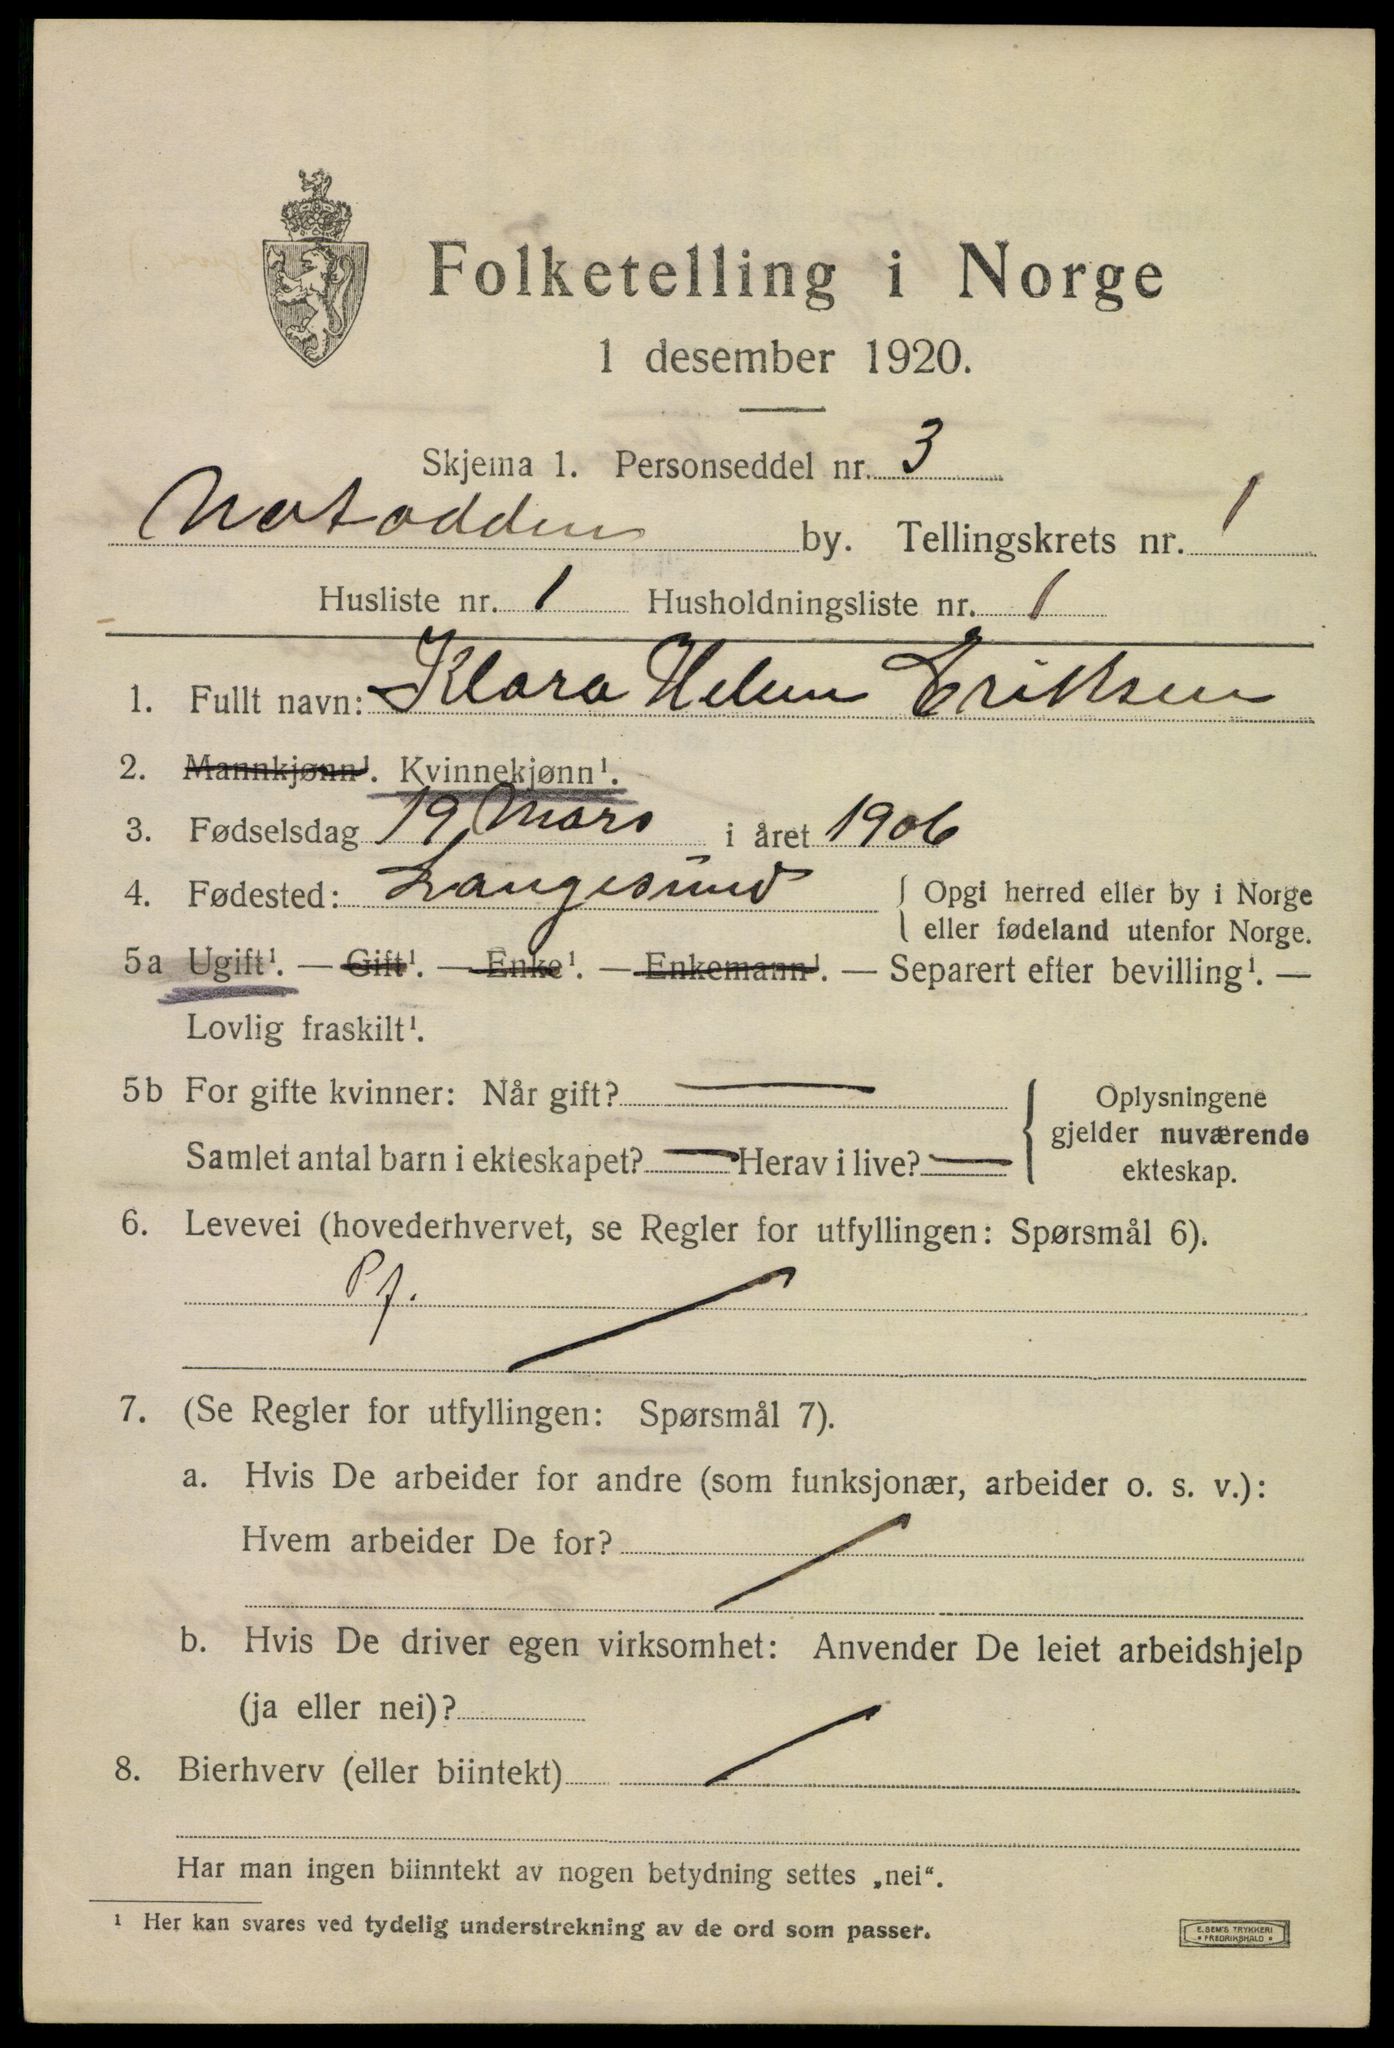 Folketelling i Norge
1 desember 1920.
Skjema 1. Personseddel nr. 3
Notodden by. Tellingskrets nr. 1
Husliste nr. 1 Husholdningsliste nr. 1
1. Fullt navn: Klara Helene Eriksen
2. Mannkjønn¹. Kvinnekjønn¹.
3. Fødselsdag 19 Mars i året 1906
4. Fødested: Langesund { Opgi herred eller by i Norge
eller fødeland utenfor Norge.
5a Ugift¹. — Gift¹. — Enke¹. — Enkemann¹. — Separert efter bevilling¹. —
Lovlig fraskilt¹.
5b For gifte kvinner: Når gift? —
Samlet antal barn i ekteskapet? — Herav i live? —
Oplysningene
gjelder nuværende
ekteskap.
6. Levevei (hovederhvervet, se Regler for utfyllingen: Spørsmål 6).
Pf.
7. (Se Regler for utfyllingen: Spørsmål 7).
a. Hvis De arbeider for andre (som funksjonær, arbeider o. s. v.):
Hvem arbeider De for?
b. Hvis De driver egen virksomhet: Anvender De leiet arbeidshjelp
(ja eller nei)?
8. Bierhverv (eller biintekt)
Har man ingen biinntekt av nogen betydning settes „nei“.
¹ Her kan svares ved tydelig understrekning av de ord som passer.
E. SEM'S TRYKKERI
• FREDRIKSHALD •